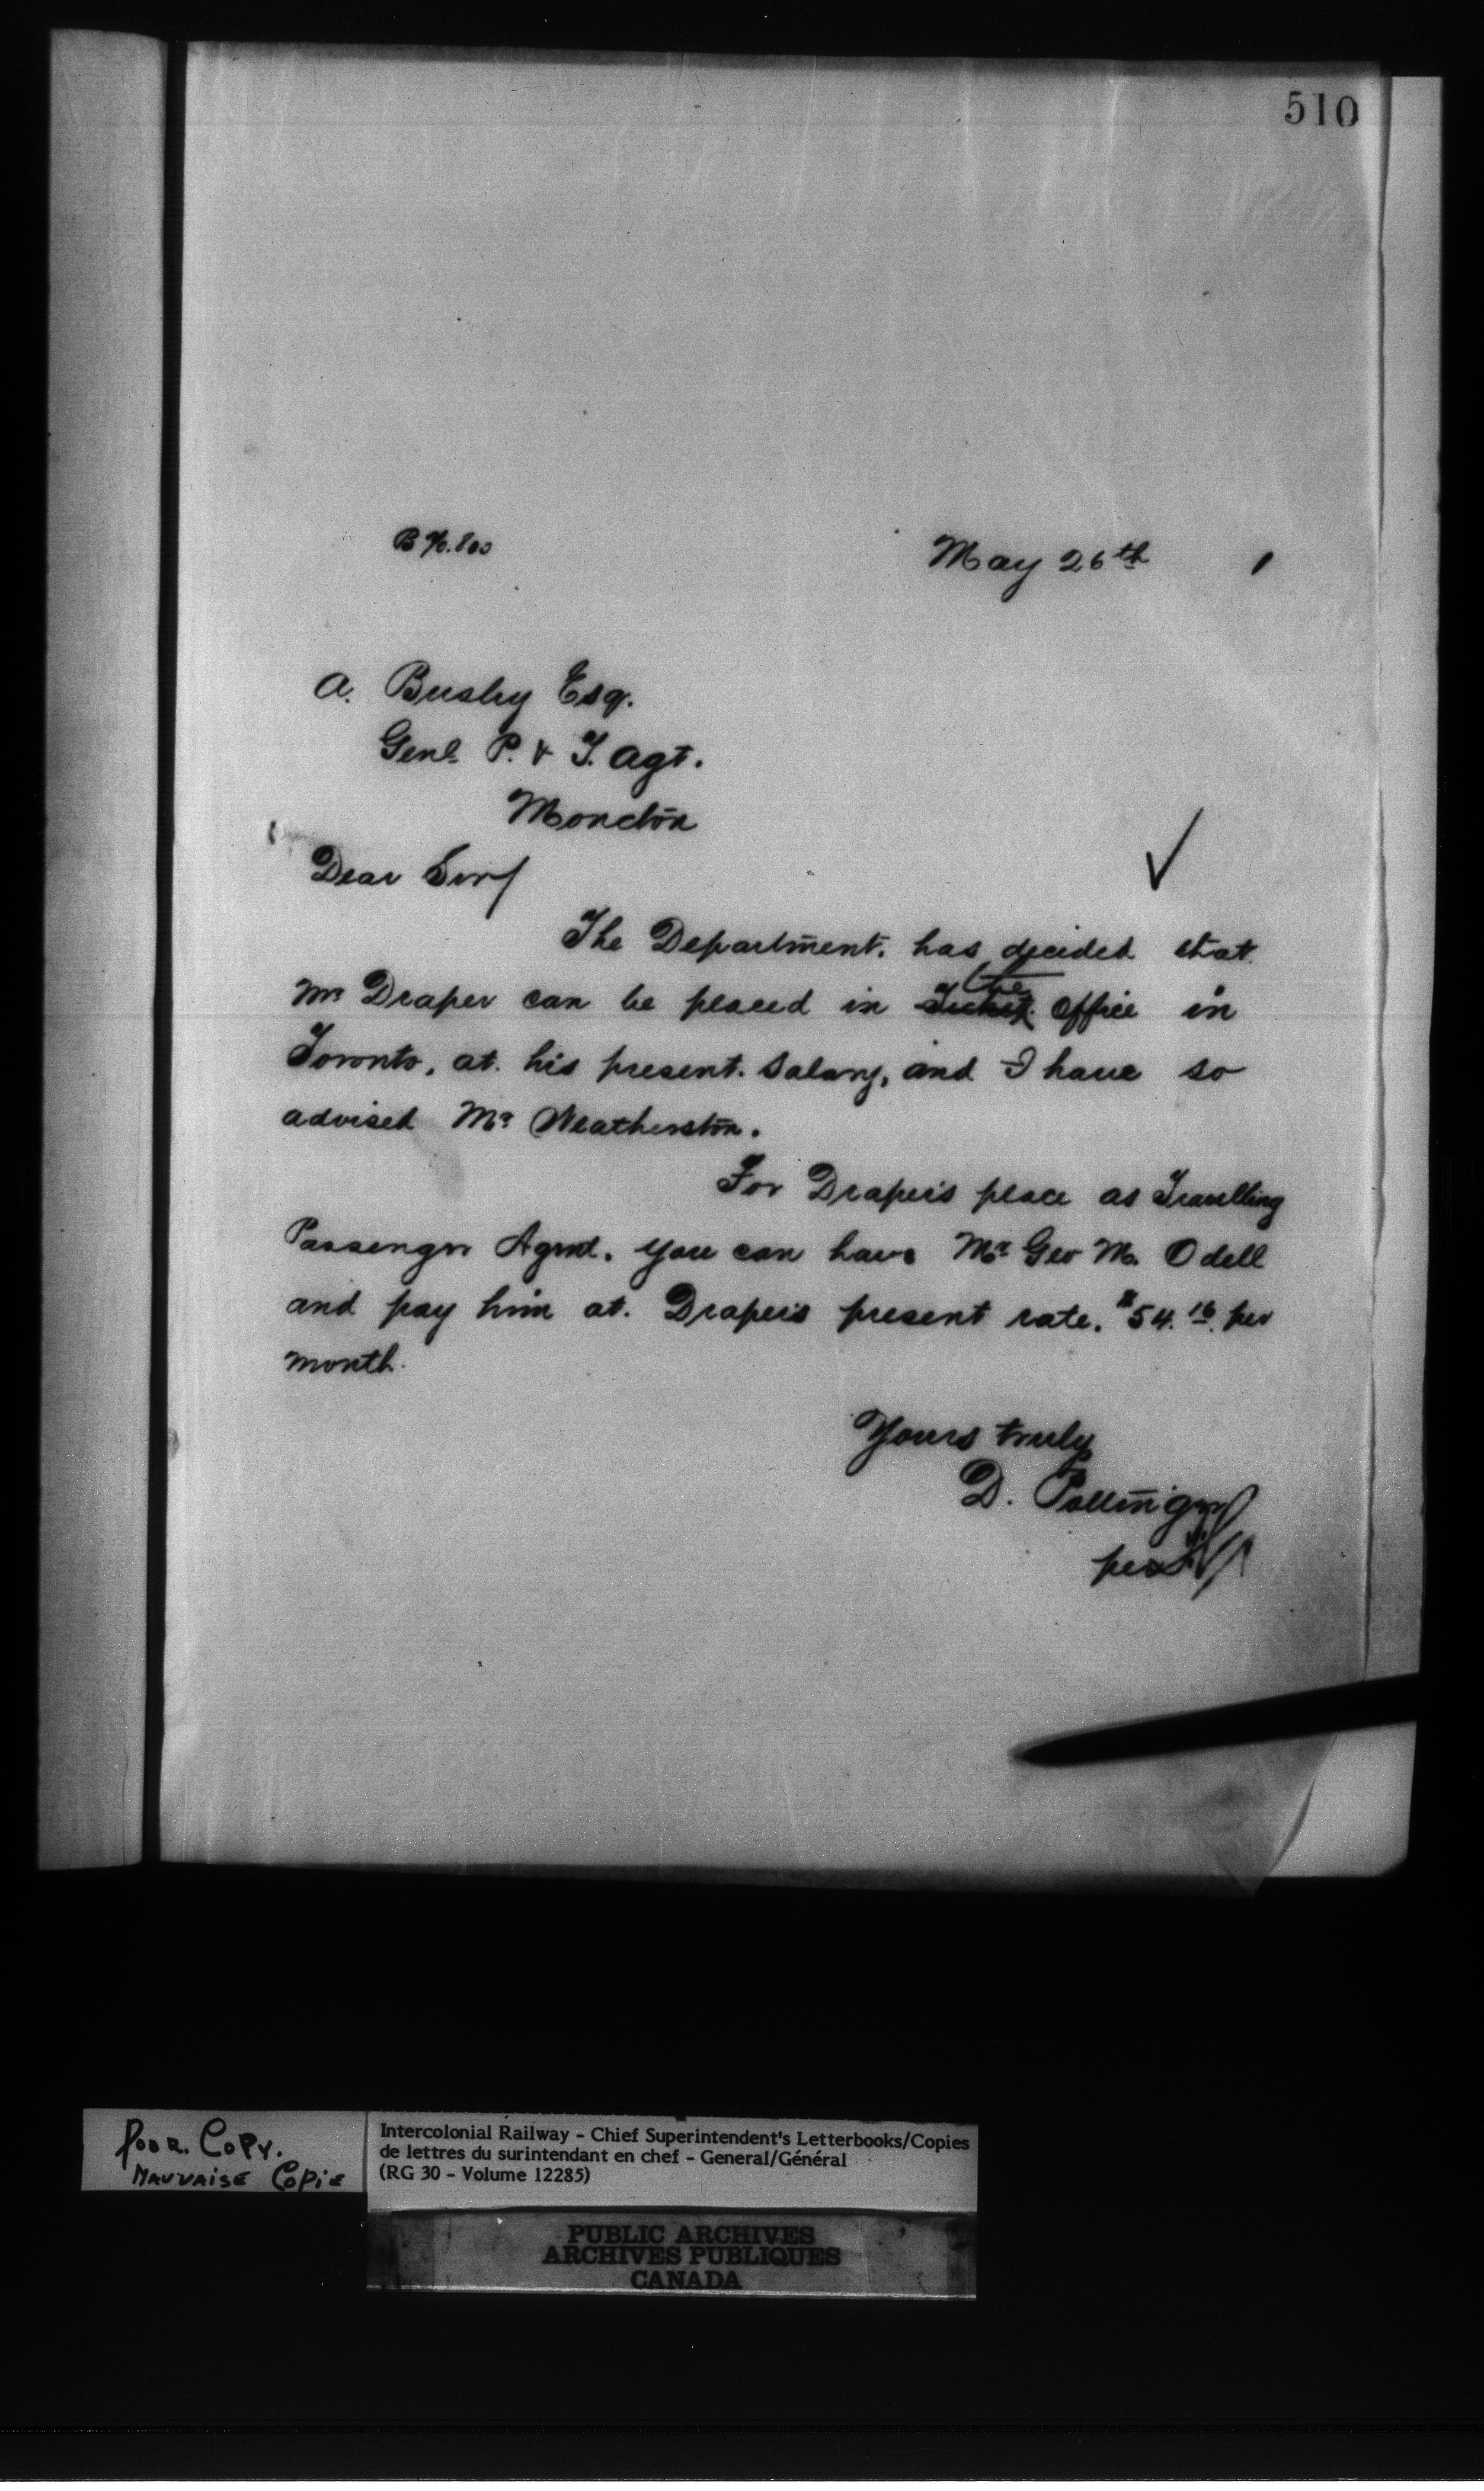 510
May 26th 1
A. Busby Esq.
Genl. P. & T. Agt.
Moncton
Dear Sir/
The Department. has decided that
Mr Draper can be placed in the Ticket office in
Toronto, at. his present. Salary, and I have so
advised Mr Weatherston.
For Draper's place as Travelling
Passenger Agent. you can have Mr Geo M. Odell
and pay him at. Draper's present rate. $54.16 per
month.
Yours truly
D. Pottinger
per
Poor. Copy.
Mauvaise Copie
Intercolonial Railway - Chief Superintendent's Letterbooks/Copies
de lettres du surintendant en chef - General/Général
(RG 30 - Volume 12285)
PUBLIC ARCHIVES
ARCHIVES PUBLIQUES
CANADA